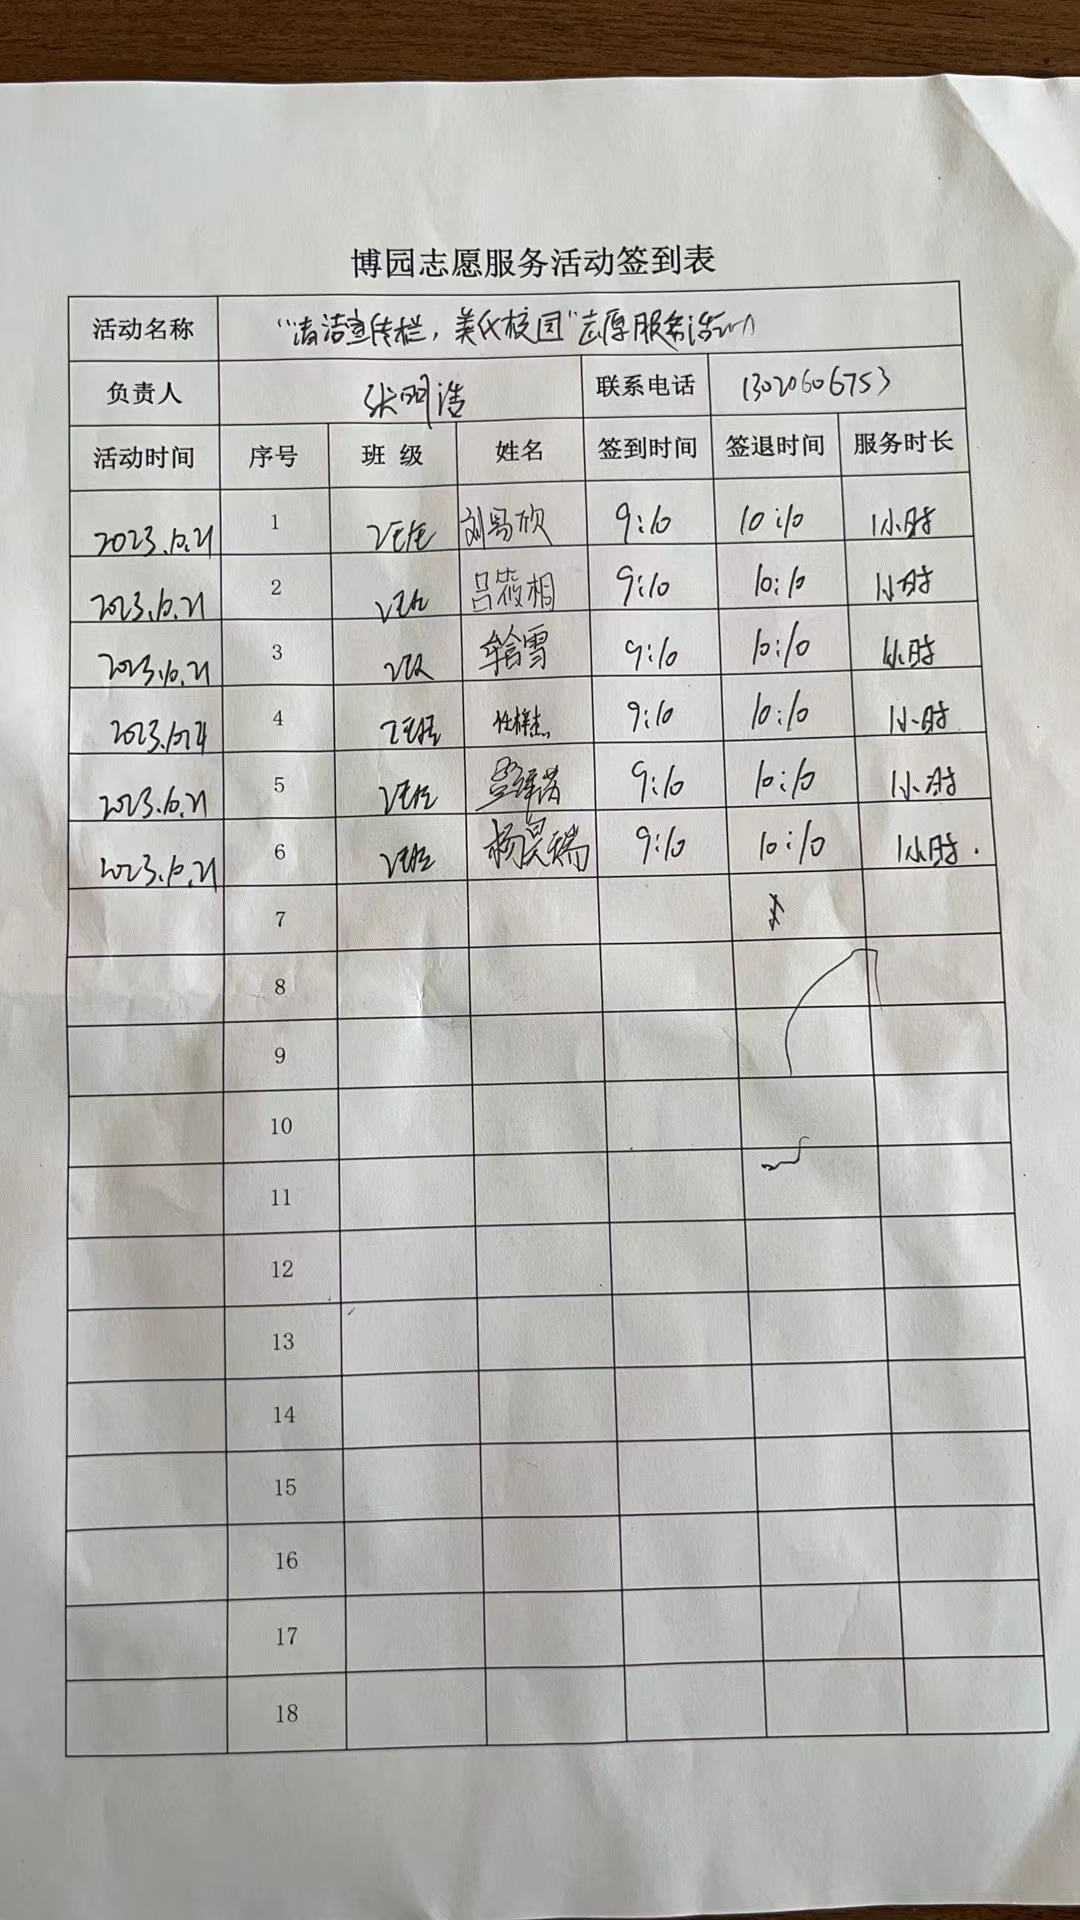 博园志愿服务活动签到表
活动名称 "清洁宣传栏，美化校园"志愿服务活动
负责人 张明浩 联系电话 13020606753
活动时间 序号 班 级 姓名 签到时间 签退时间 服务时长
2023.10.21 1 2班 刘易欣 9:10 10:10 1小时
2023.10.21 2 2班 吕筱桐 9:10 10:10 1小时
2023.10.21 3 2班 雪 9:10 10:10 1小时
2023.10.21 4 2班 9:10 10:10 1小时
2023.10.21 5 2班 9:10 10:10 1小时
2023.10.21 6 2班 杨昊瑞 9:10 10:10 1小时.
7
8
9
10
11
12
13
14
15
16
17
18